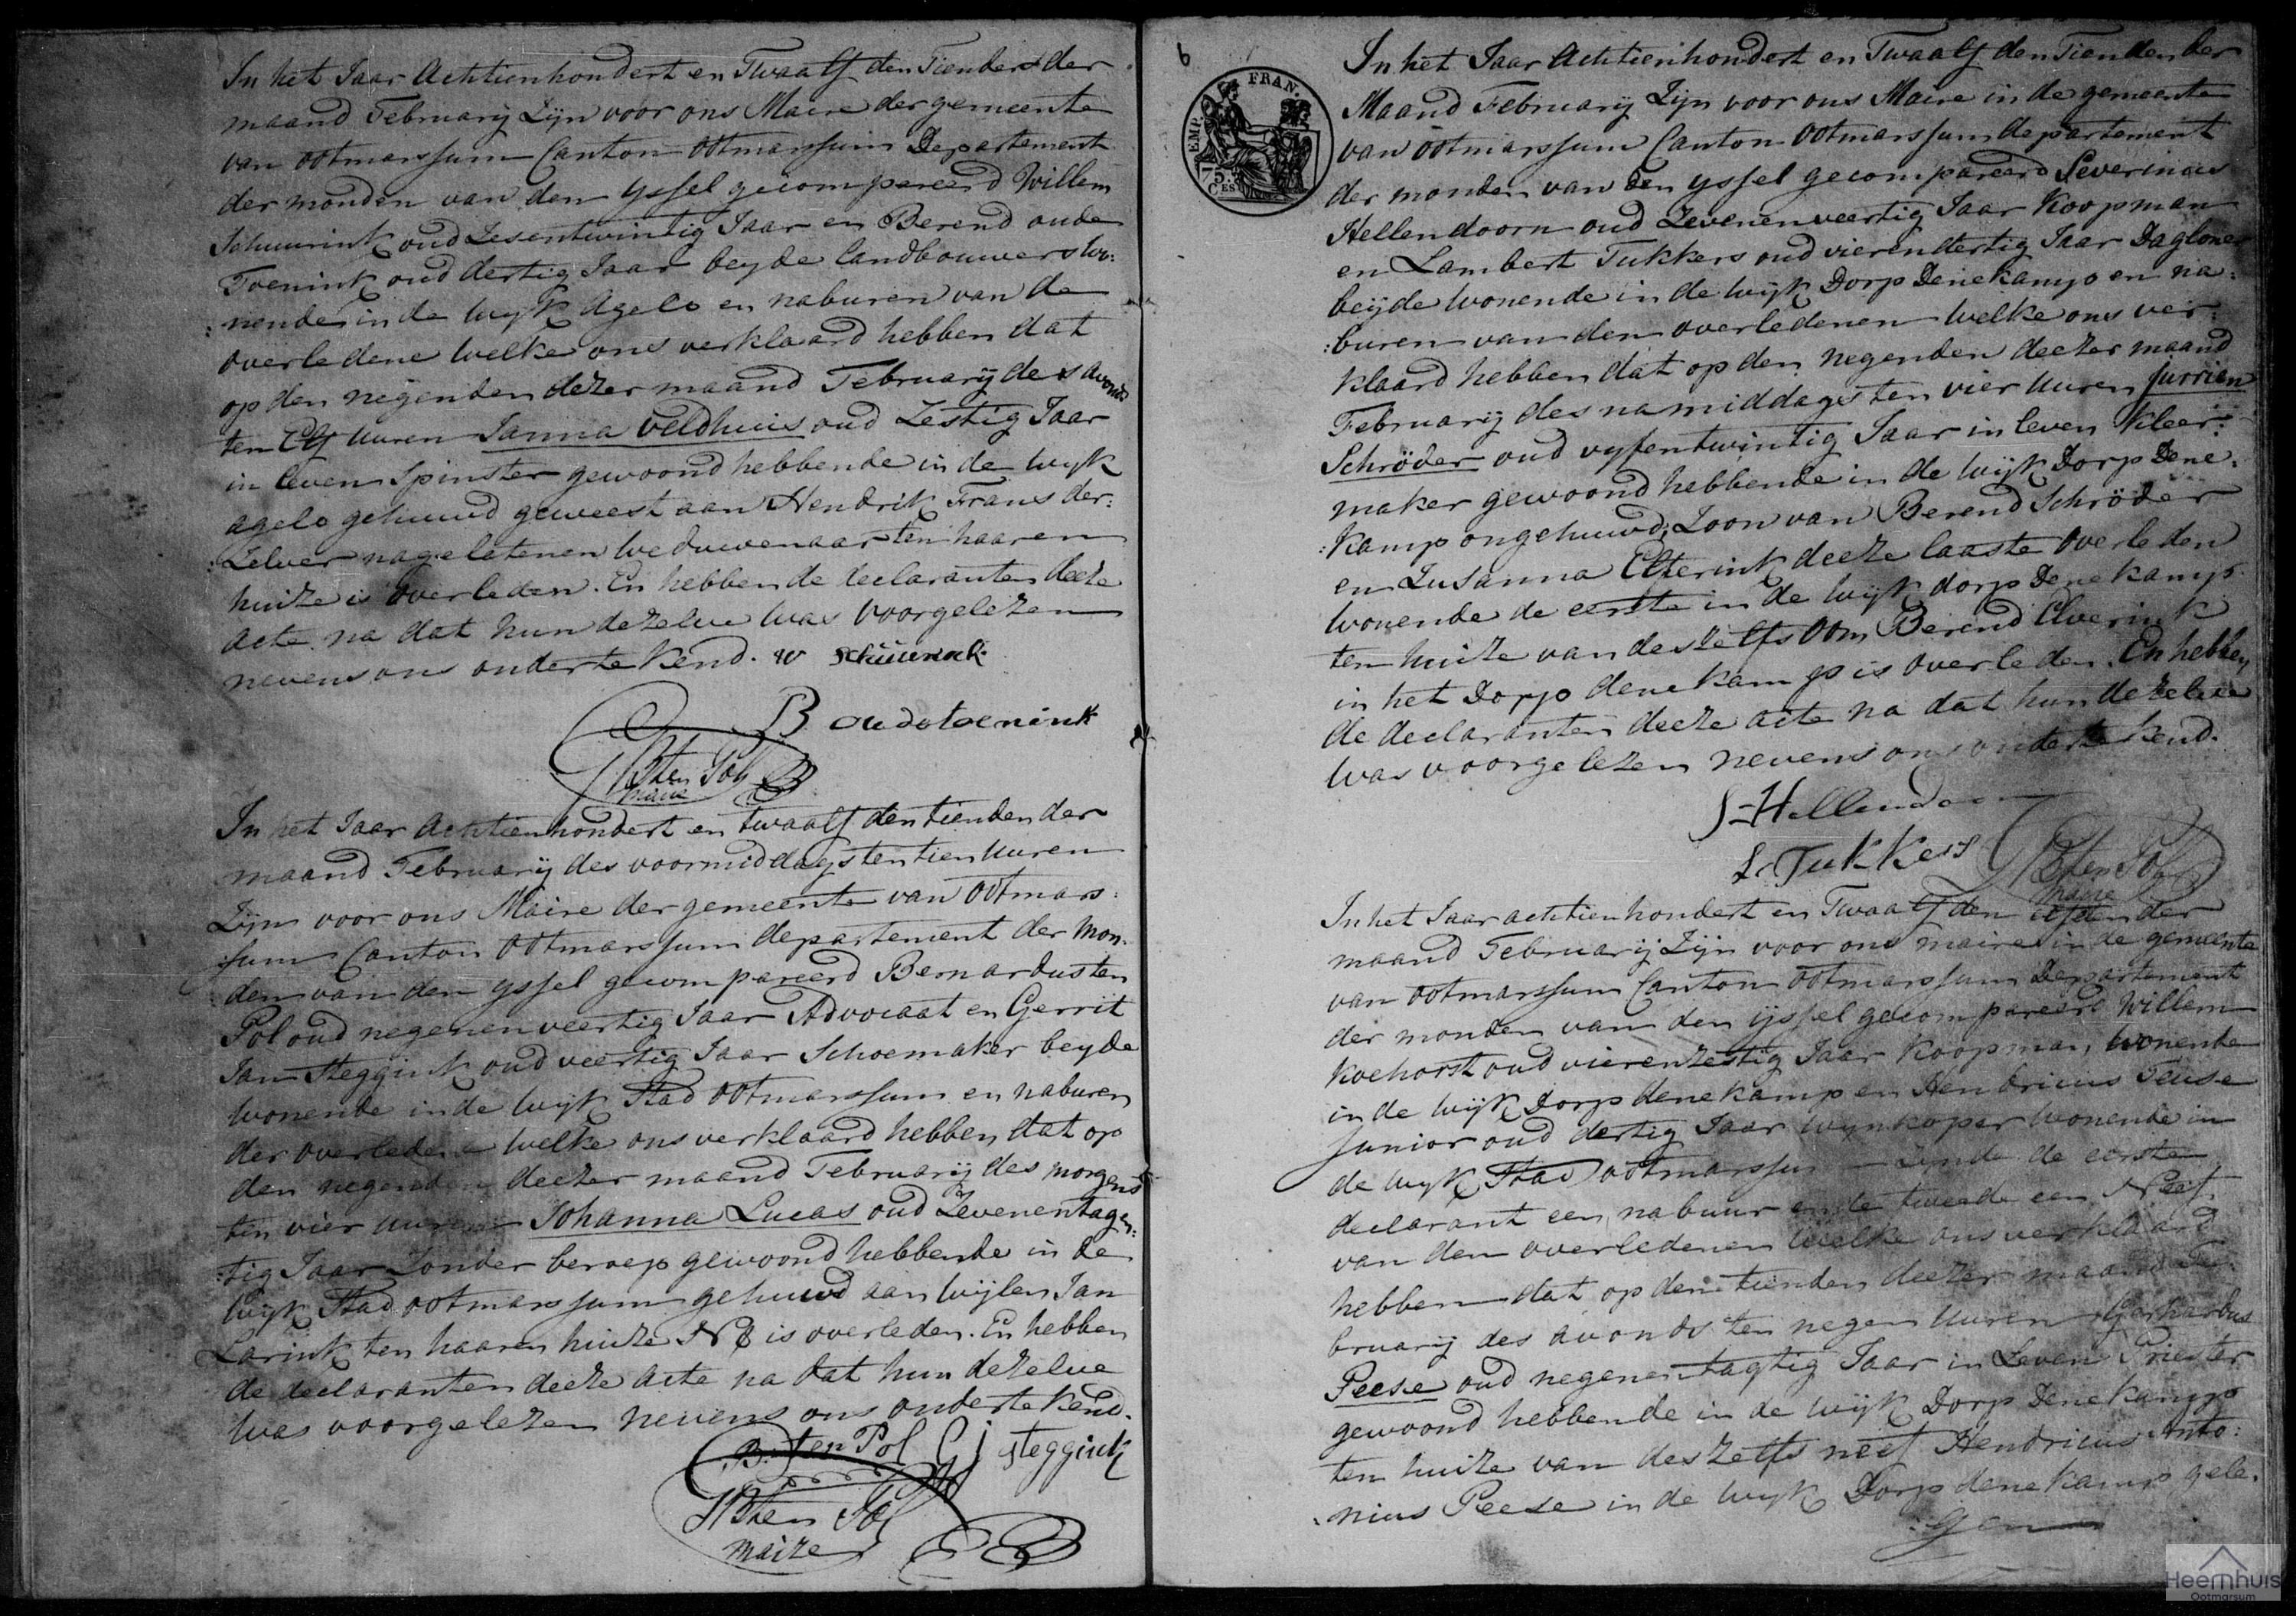 In het Jaar Achtienhondert en Twaalf den Tienden der
maand February Zijn voor ons Maire der gemeente
van Ootmarssum Canton Ootmarssum Departement
der monden van den yssel gecompareerd Willem
Schuurink oud Zesentwintig Jaar en Berend oude
Toenink oud dertig Jaar beyde landbouwers wo:
:nende in de wyk Agelo en naburen van de
overledene welke ons verklaard hebben dat
op den negenden dezer maand February des avonds
ten Elf uuren Janna Veldhuis oud Zestig Jaar
in leven Spinster gewoond hebbende in de wyk
agelo gehuwd geweest aan Hendrik Frans der:
:Zelver nagelatenen weduwenaar ten haaren
huize is overleden. En hebben de declaranten deeze
acte na dat hun dezelve was voorgelezen
nevens ons onderte kend. W Schuurink
B oudetoenink
ten Pol
maire
In het Jaar Achtienhondert en twaalf den tienden der
maand February des voormiddags ten tien uuren
Zijn voor ons Maire der gemeente van Ootmars:
:sum Canton Ootmarssum departement der mon:
:den van den yssel gecompareerd Bernardus ten
Pol oud negenenveertig Jaar Advocaat en Gerrit
Jan Steggink oud veertig Jaar Schoemaker beyde
wonende in de wyk Stad Ootmarssum en naburen
der overledene welke ons verklaard hebben dat op
den negenden deezer maand February des morgens
ten vier uuren Johanna Lucas oud Zevenentagen:
:tig Jaar Zonder beroep gewoond hebbende in de
wyk Stad Ootmarssum gehuwd aan wijlen Jan
Larink ten haaren huize N is overleden. En hebben
de declaranten deeze acte na dat hun dezelve
was voorgelezen nevens ons onderte kend.
B. ten Pol GJ Steggink
ten Pol
maire
6
EMP. FRAN.
75.
CES
In het Jaar Achtienhondert en Twaalf den Tienden der
Maand February Zijn voor ons Maire in de gemeente
van Ootmarssum Canton Ootmarssum departement
der monden van den yssel gecompareerd Severinus
Hellendoorn oud Zevenenveertig Jaar Koopman
en Lambert Tukkers oud vierendertig Jaar Dagloner
beijde wonende in de wijk Dorp Denekamp en na:
:buren van den overledenen welke ons ver:
klaard hebben dat op den negenden deezer maand
February des namiddags ten vier uuren Jurrien
Schröder oud vyfentwintig Jaar in leven Kleer:
maker gewoond hebbende in de wijk Dorp Dene:
:kamp ongehuwd, Zoon van Berend Schröder
en Zusanna Elferink deeze laaste overleden
wonende de eerste in de wijk dorp Denekamp
ten huize van deszelfs Oom Berend Elverink
in het Dorp denekamp is overleden. En hebben
de declaranten deeze acte na dat hun dezelve
was voorgelezen nevens ons onderte kend.
S-Hellendoorn
L. Tukkers
ten Pol
maire
In het Jaar achtienhondert en Twaalf den elfden der
maand February Zijn voor ons maire in de gemeente
van Ootmarssum Canton Ootmarssum Departement
der monden van den ijssel gecompareerd Willem
Koehorst oud vierenzestig Jaar Koopman, wonende
in de wijk Dorp denekamp en Hendricus Teuse
Junior oud dertig Jaar wynkoper wonende in
de wyk Stad Ootmarssum Zynde de eerste
declarant een nabuur en de tweede een Neef
van den overledenen welke ons verklaard
hebben dat op den tienden deezer maand Fe:
bruarij des avonds ten negen uuren Gerhardus
Peese oud negenentagtig Jaar in Leven Priester
gewoond hebbende in de wijk Dorp Denekamp
ten huize van deszelfs neef Hendricus Anto:
:nius Peese in de wyk Dorp denekamp gele:
:gen
Heemhuis
Ootmarsum